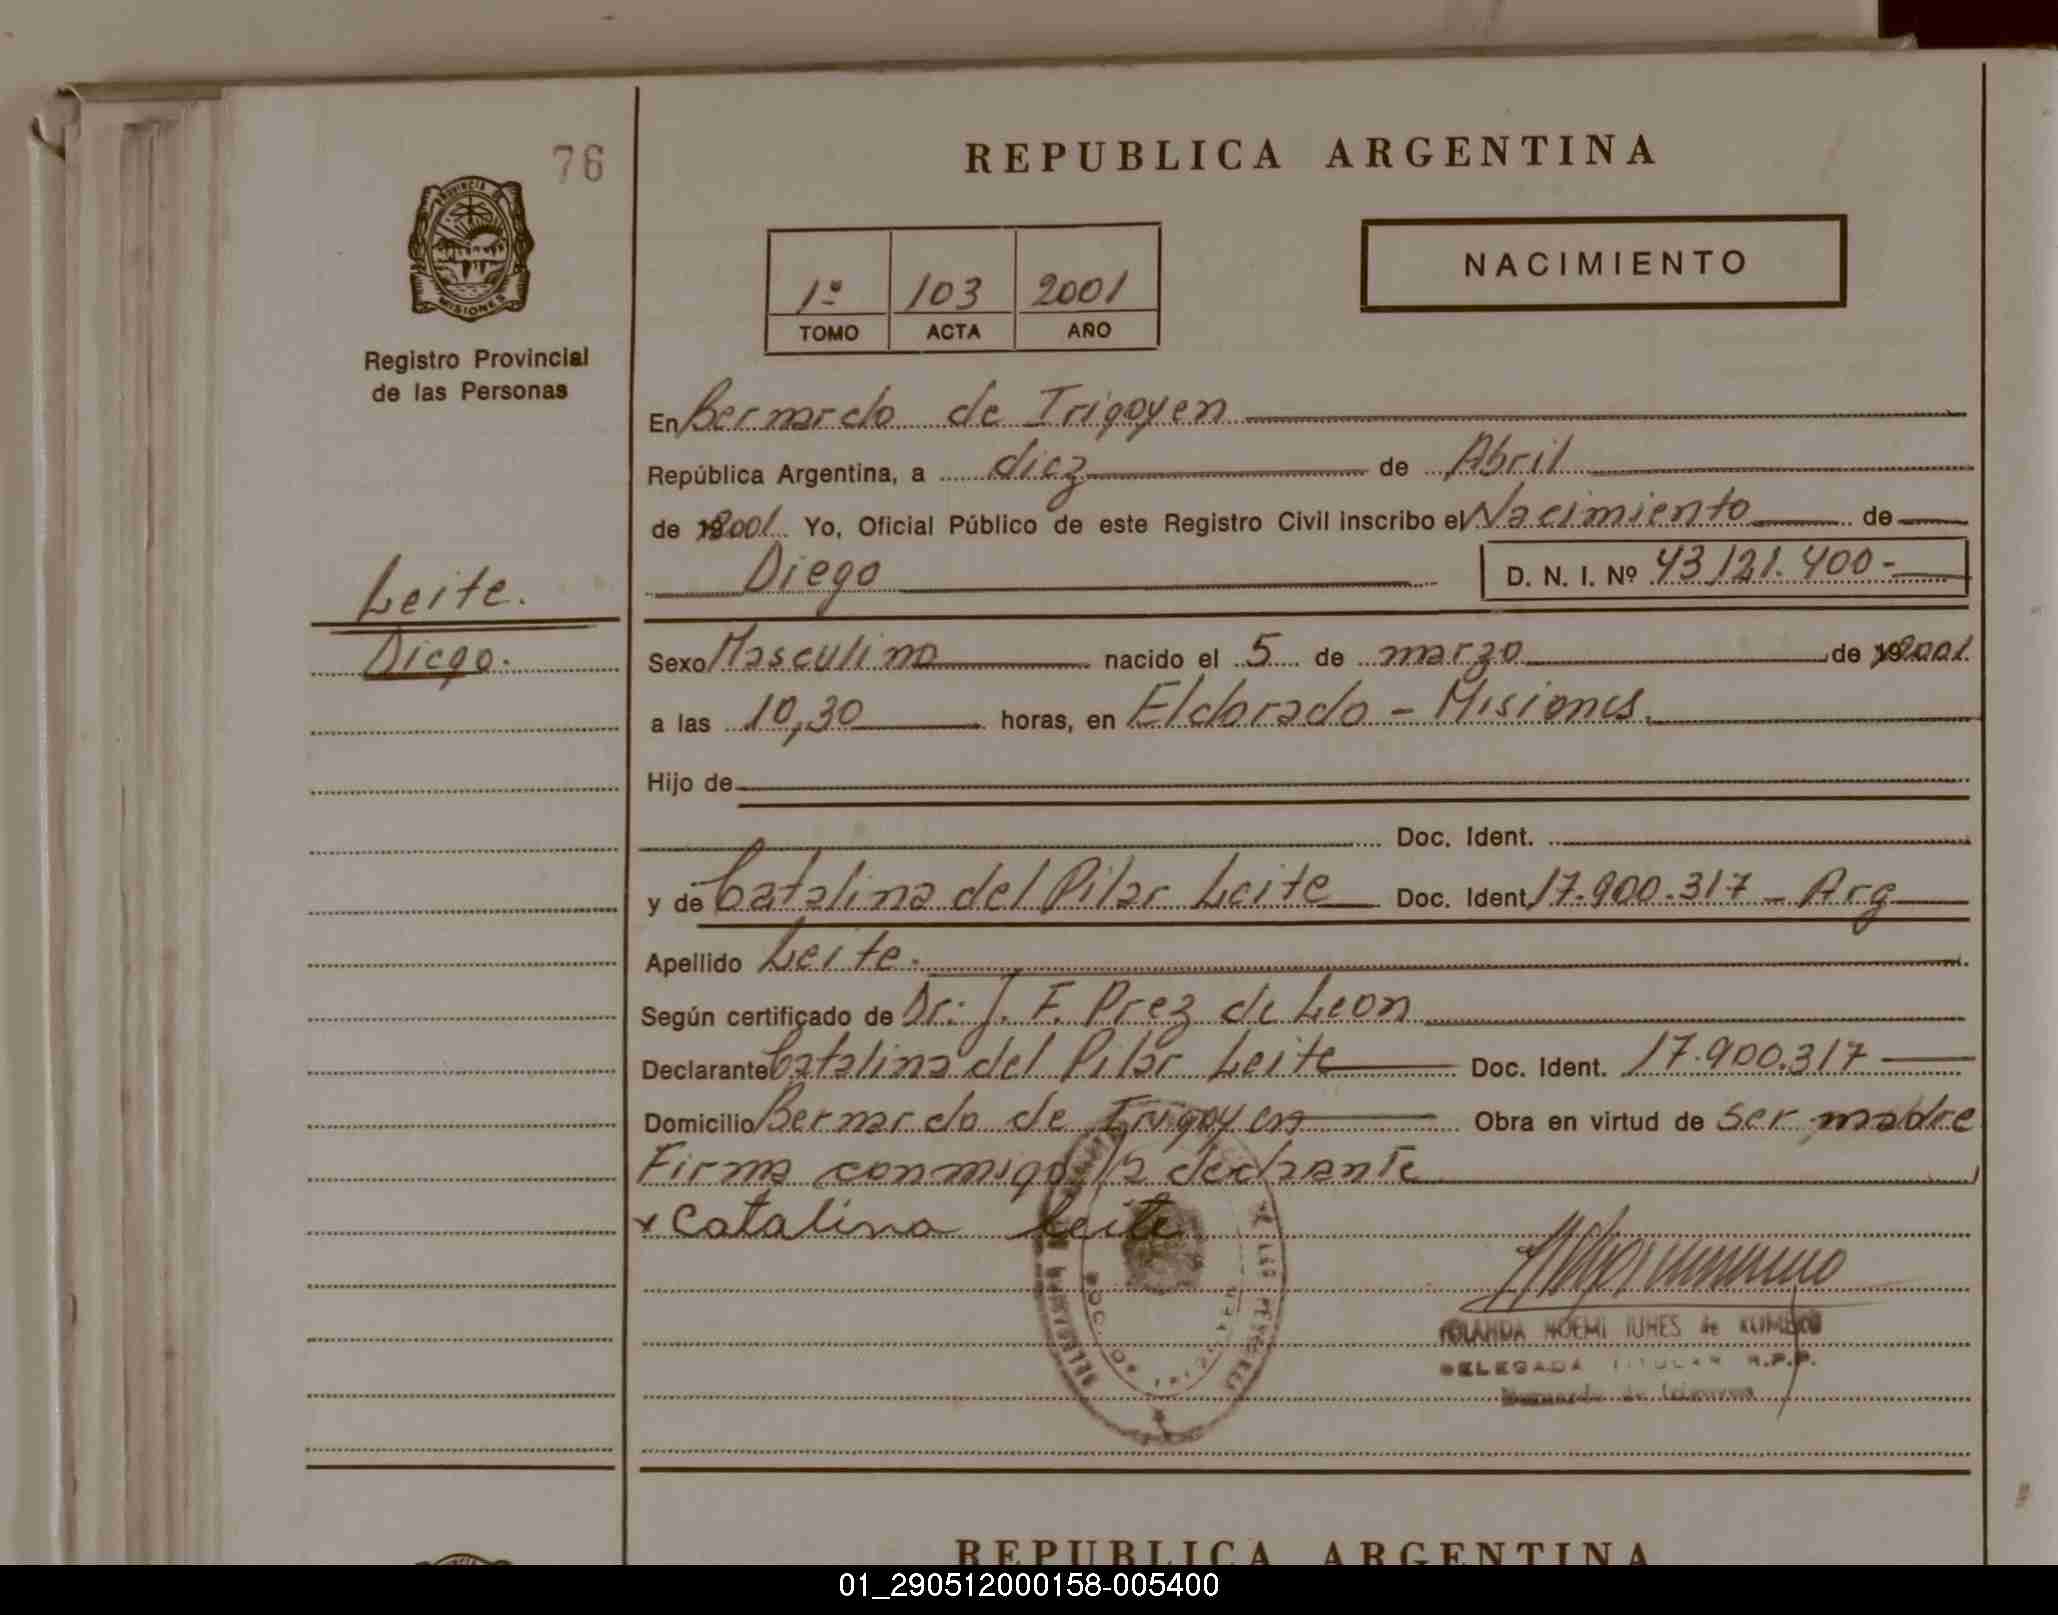 76
REPUBLICA ARGENTINA
PROVINCIA DE
MISIONES
Registro Provincial
de las Personas
1º 103 2001
TOMO ACTA AÑO
NACIMIENTO
En Bernardo de Irigoyen
República Argentina, a diez de Abril
de 2001 Yo, Oficial Público de este Registro Civil inscribo el Nacimiento de
Diego D. N. I. Nº 43.121.400-
Leite.
Diego.
Sexo Masculino nacido el 5 de marzo de 2001
a las 10,30 horas, en Eldorado - Misiones.
Hijo de
Doc. Ident.
y de Catalina del Pilar Leite Doc. Ident. 17.900.317 - Arg
Apellido Leite.
Según certificado de Dr: J. F. Prez de Leon
Declarante Catalina del Pilar Leite Doc. Ident. 17.900.317
Domicilio Bernardo de Irigoyen Obra en virtud de ser madre
Firma conmigo la declarante
x Catalina Leite
NOEMI de
DELEGADA TITULAR R.P.P.
REPUBLICA ARGENTINA
01_290512000158-005400